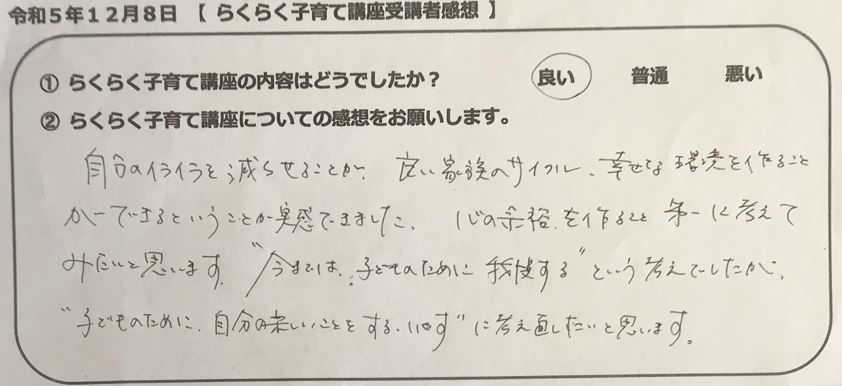 令和５年１２月８日 【 らくらく子育て講座受講者感想 】
① らくらく子育て講座の内容はどうでしたか？ 良い 普通 悪い
② らくらく子育て講座についての感想をお願いします。
自分のイライラを減らせることが、良い家族のサイクル、幸せな環境を作ること
ができるということが実感できました。心の余裕を作ること第一に考えて
みたいと思います。"今までは、子どものために我慢する"という考えでしたが、
"子どものために、自分の楽しいことをする、"に考え直したいと思います。